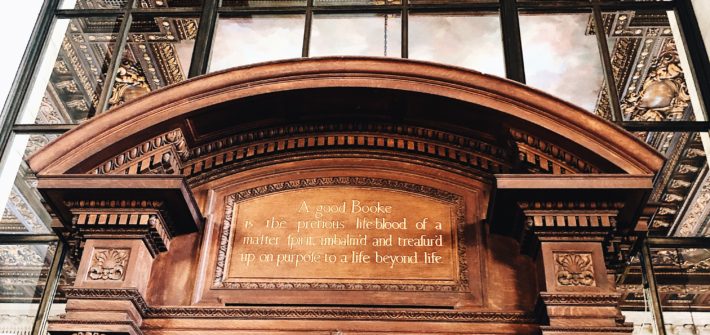 A good Booke
is the pretious life-blood of a
maſter ſpirit, imbalm'd and treaſur'd
up on purpoſe to a life beyond life